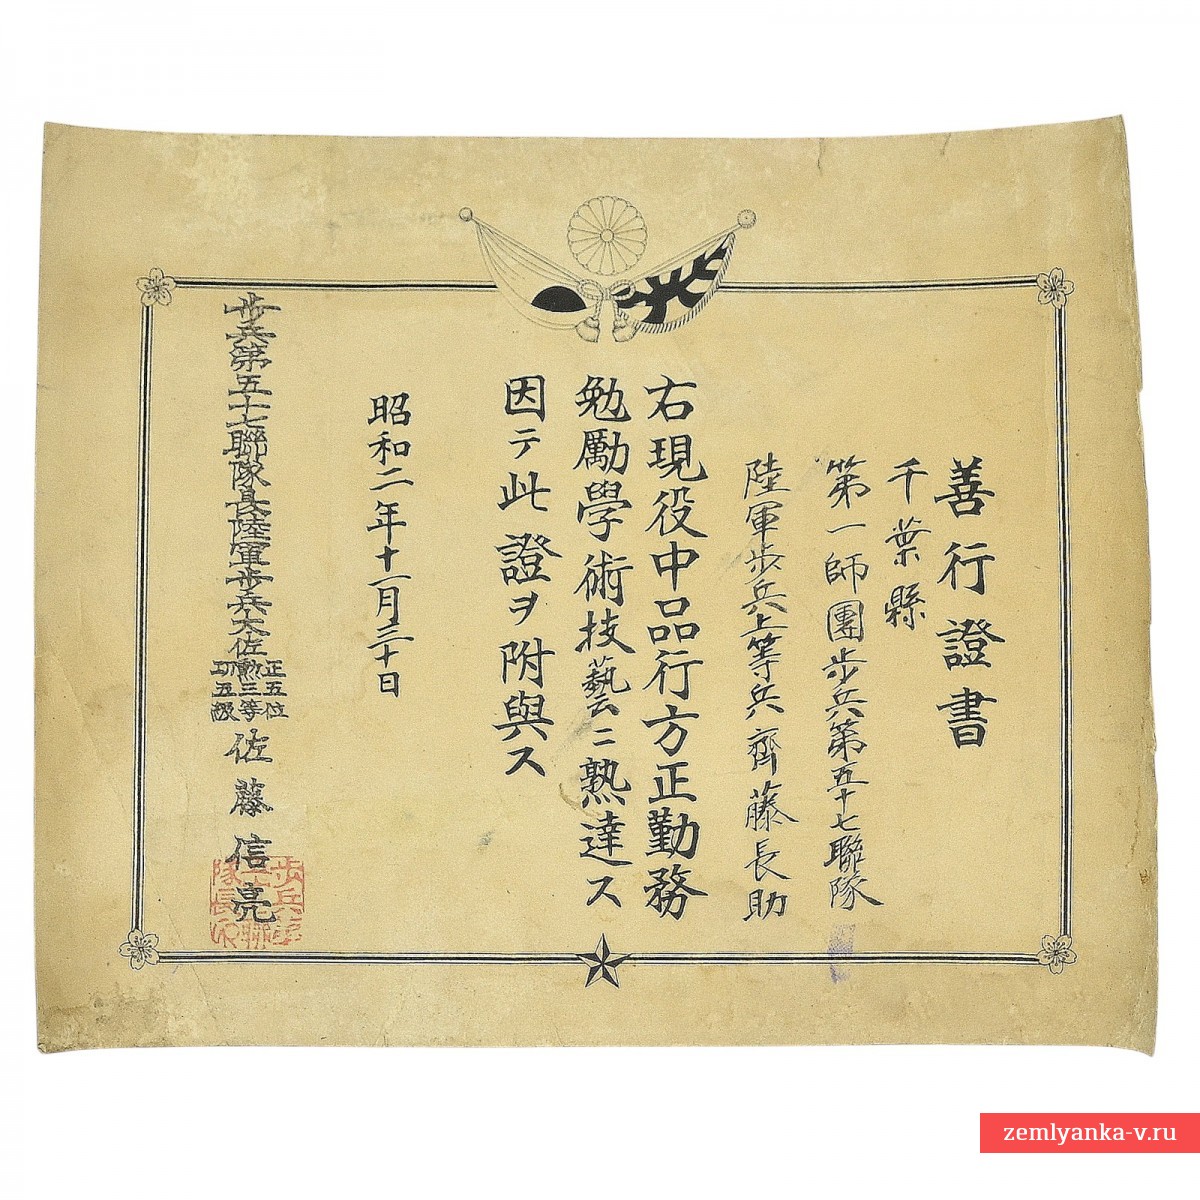 善行證書
千葉縣
第一師團步兵第五十七聯隊
陸軍步兵上等兵 齊藤長助
右現役中品行方正勤務
勉勵學術技藝ニ熟達ス
因テ此證ヲ附與ス
昭和二年十一月三十日
步兵第五十七聯隊長陸軍步兵大佐 正五位 勲三等 功五級 佐藤信亮
zemlyanka-v.ru